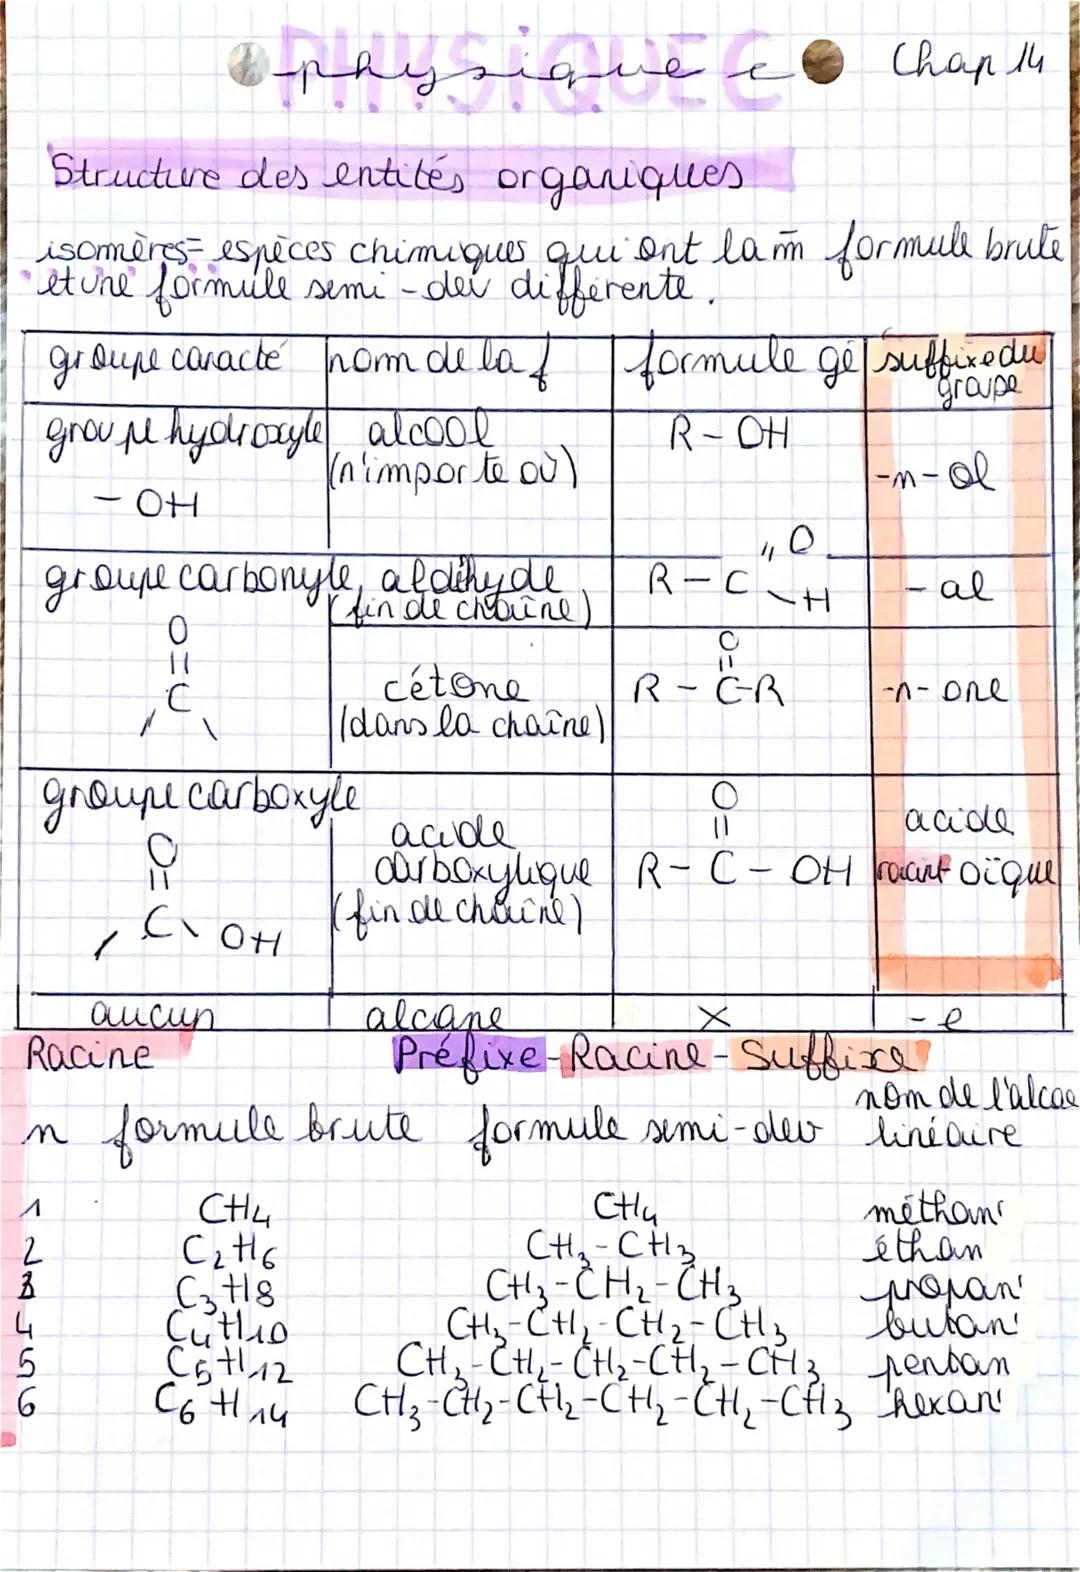 PHYSIQUE C
physique c Chap 14
Structure des entités organiques
isomères = espèces chimiques qui ont la m̄ formule brute
et une formule semi-dev différente.
groupe caracté nom de la f formule gé suffixe du groupe
groupe hydroxyle alcool R - OH
(n'importe où) -n-ol
- OH
groupe carbonyle aldéhyde R - C =O -H - al
(fin de chaîne)
O
=
C
cétone R - C-R -n-one
(dans la chaîne)
O
=
groupe carboxyle
O
=
C OH
acide
carboxylique
(fin de chaîne)
O
=
R - C - OH
acide
racine oïque
aucun alcane x - e
Racine Préfixe-Racine-Suffixe
n formule brute formule semi-dev nom de l'alcae linéaire
1 CH4 CH4 méthan
2 C2H6 CH3-CH3 éthan
3 C3H8 CH3-CH2-CH3 propan
4 C4H10 CH3-CH2-CH2-CH3 butan
5 C5H12 CH3-CH2-CH2-CH2-CH3 pentan
6 C6H14 CH3-CH2-CH2-CH2-CH2-CH3 hexan